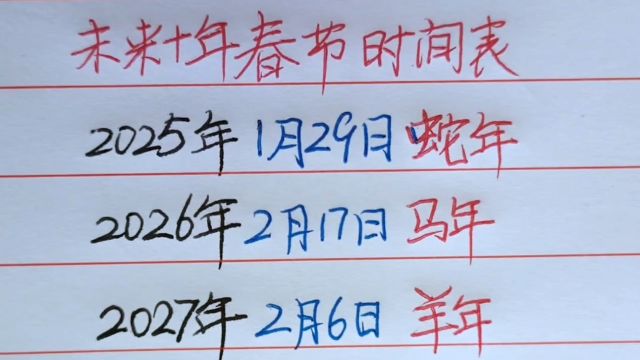 未来十年春节时间表
2025年 1月29日 蛇年
2026年 2月17日 马年
2027年 2月6日 羊年